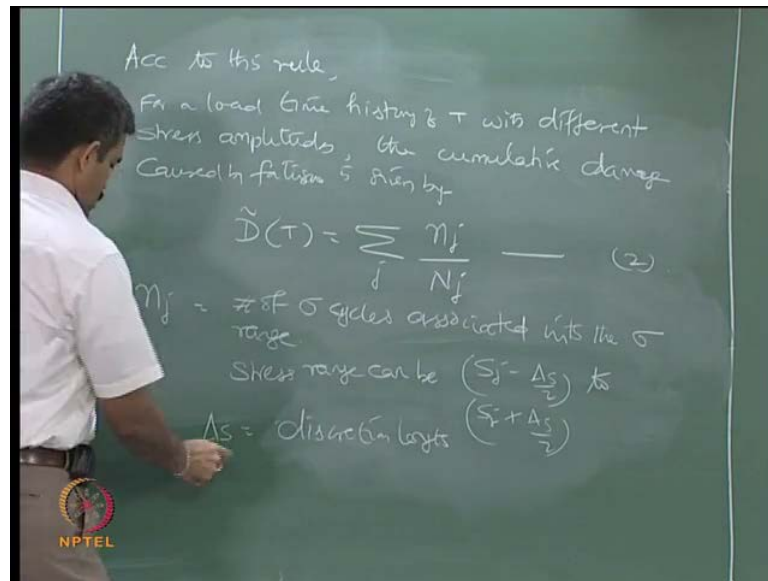 Acc to this rule,
For a load time history of T with different
stress amplitudes, the cumulative damage
Caused by fatigue is given by
D̃(T) = Σj nj/Nj —— (2).
nj = # of σ cycles associated with the σ
range.
Stress range can be (Sj - ΔS/2) to
(Sj + ΔS/2)
ΔS = discretion
NPTEL